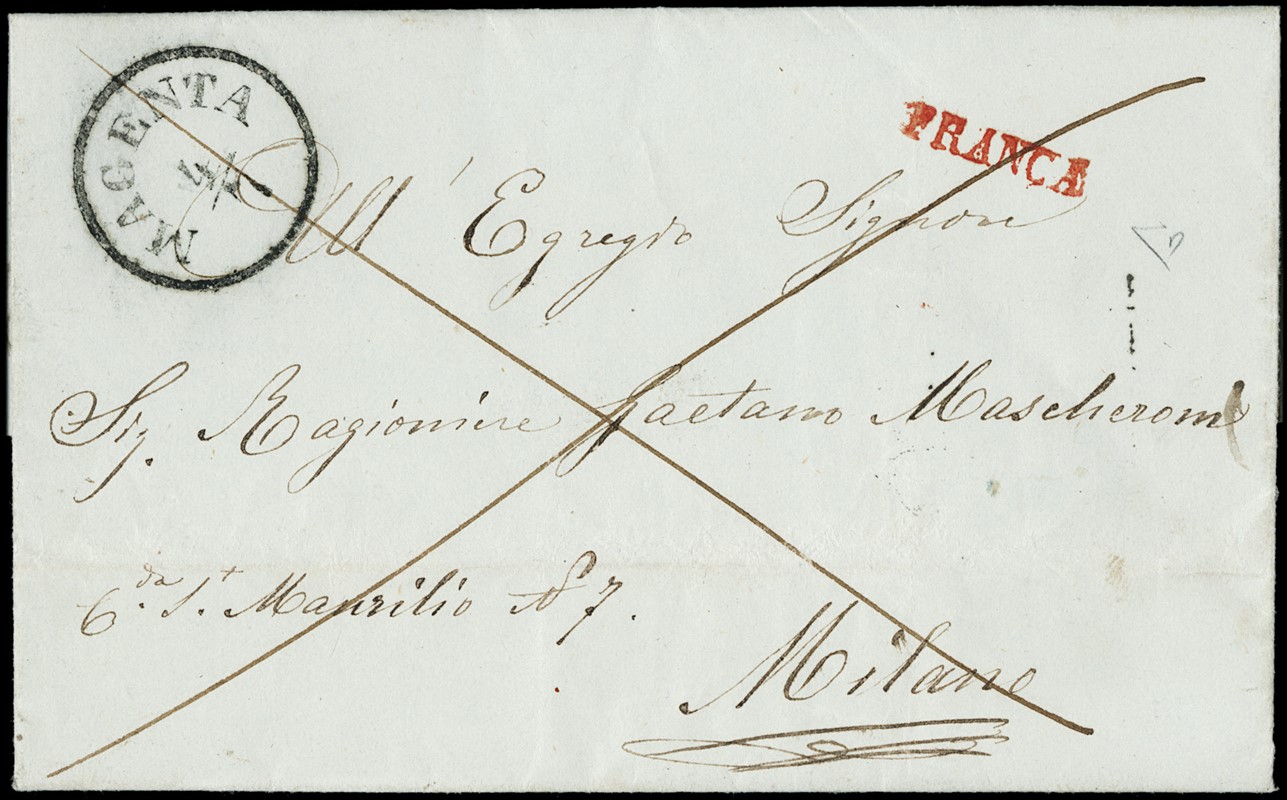 MAGENTA
FRANCA
All' Egregio Signore
Sig. Ragioniere Gaetano Mascheroni
C.da S.t Maurilio N° 7.
Milano